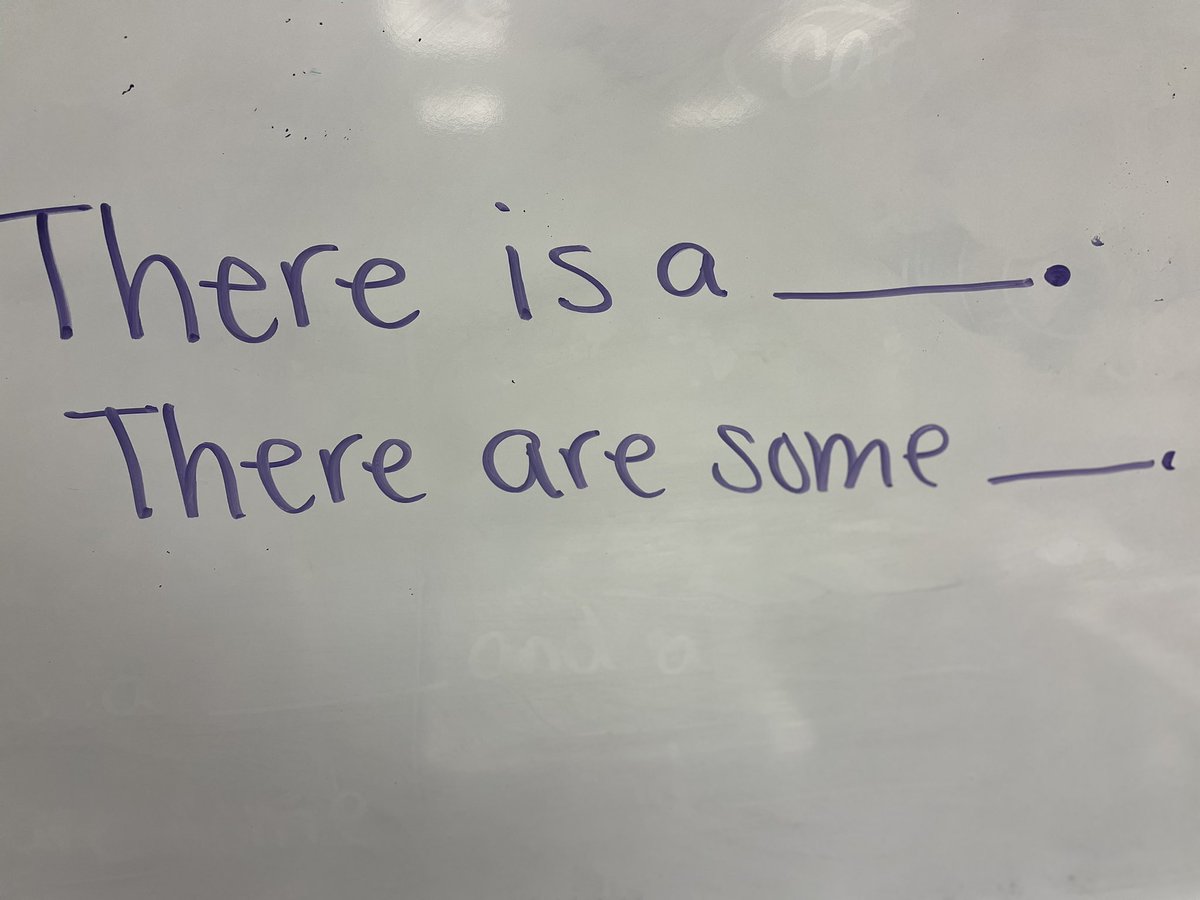 There is a ____.
There are some ____.